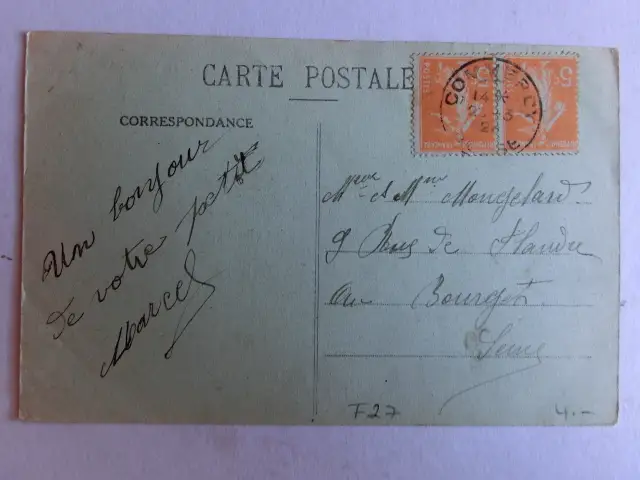 CARTE POSTALE
CORRESPONDANCE
Un bonjour
de votre petit
Marcel
et Mme Mongelard
9 Rue de Flandre
au Bourget
Seine
F27
4.-
5
5
POSTES